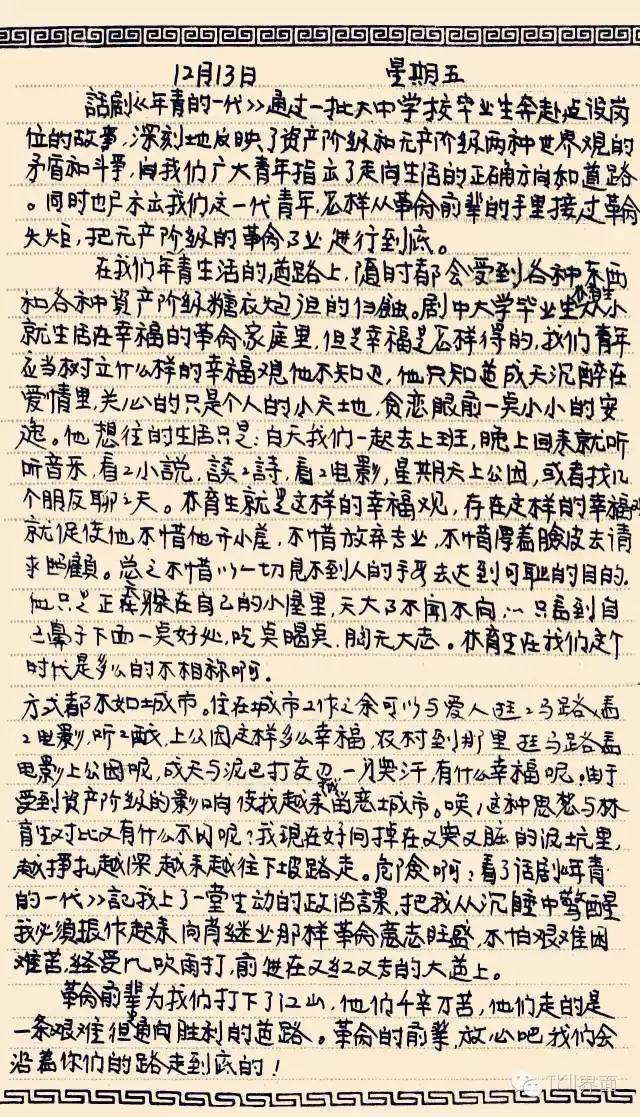 12月13日 星期五
話剧《年青的一代》通过一批大中学校毕业生奔赴建设岗
位的故事，深刻地反映了资产阶级和无产阶级两种世界观的
矛盾和斗争，向我们广大青年指出了走向生活的正确方向和道路
。同时也启示出我们这一代青年，怎样从革命前辈的手里接过革命
火炬，把无产阶级的革命事业进行到底。
在我们年青生活的道路上，随时都会受到各种东西
和各种資产阶级糖衣炮弹的侵蝕。剧中大学毕业生林育生从小
就生活在幸福的革命家庭里，但是幸福是怎样得的，我们青年
应当树立什么样的幸福观他不知道，他只知道成天沉醉在
爱情里，关心的只是个人的小天地，贪恋眼前一点小小的安
逸。他想往的生活只是：白天我们一起去上班，晚上回来就听
听音乐，看看小説，読読詩，看看电影，星期天上公园，或者找几
个朋友聊聊天。林育生就是这样的幸福观，存在这样的幸福观
就促使他不惜他开小差，不惜放弃专业，不惜厚着臉皮去请
求照顧。总之不惜以一切見不到人的手段去达到可耻的目的。
他只是正在躲在自己的小屋里，天大事不闻不问，只看到自
己鼻子下面一点好处，吃点喝点，胸无大志。林育生在我们这个
时代是多么的不相称啊。
方式都不如城市。住在城市工作之余可以与爱人逛逛马路、看
看电影，听听戲，上公园这样多么幸福，农村到那里逛马路看
电影上公园呢，成天与泥巴打交道，一身臭汗，有什么幸福呢。由于
受到资产阶级的影响使我越来越留恋城市。唉，这种思想与林
育生对比又有什么不同呢？我現在好同掉在又臭又脏的泥坑里，
越挣扎越深，越来越往下坡路走。危险啊！看了话剧《年青
的一代》記我上了一堂生动的政治課，把我从沉睡中驚醒
我必须振作起来向肖继业那样革命意志旺盛，不怕艰难困
难苦，经受风吹雨打，前进在又红又专的大道上。
革命前輩为我们打下了江山，他们千辛万苦，他们走的是
一条艰难但是通向胜利的道路。革命的前輩，放心吧我们会
沿着你们的路走到底的！